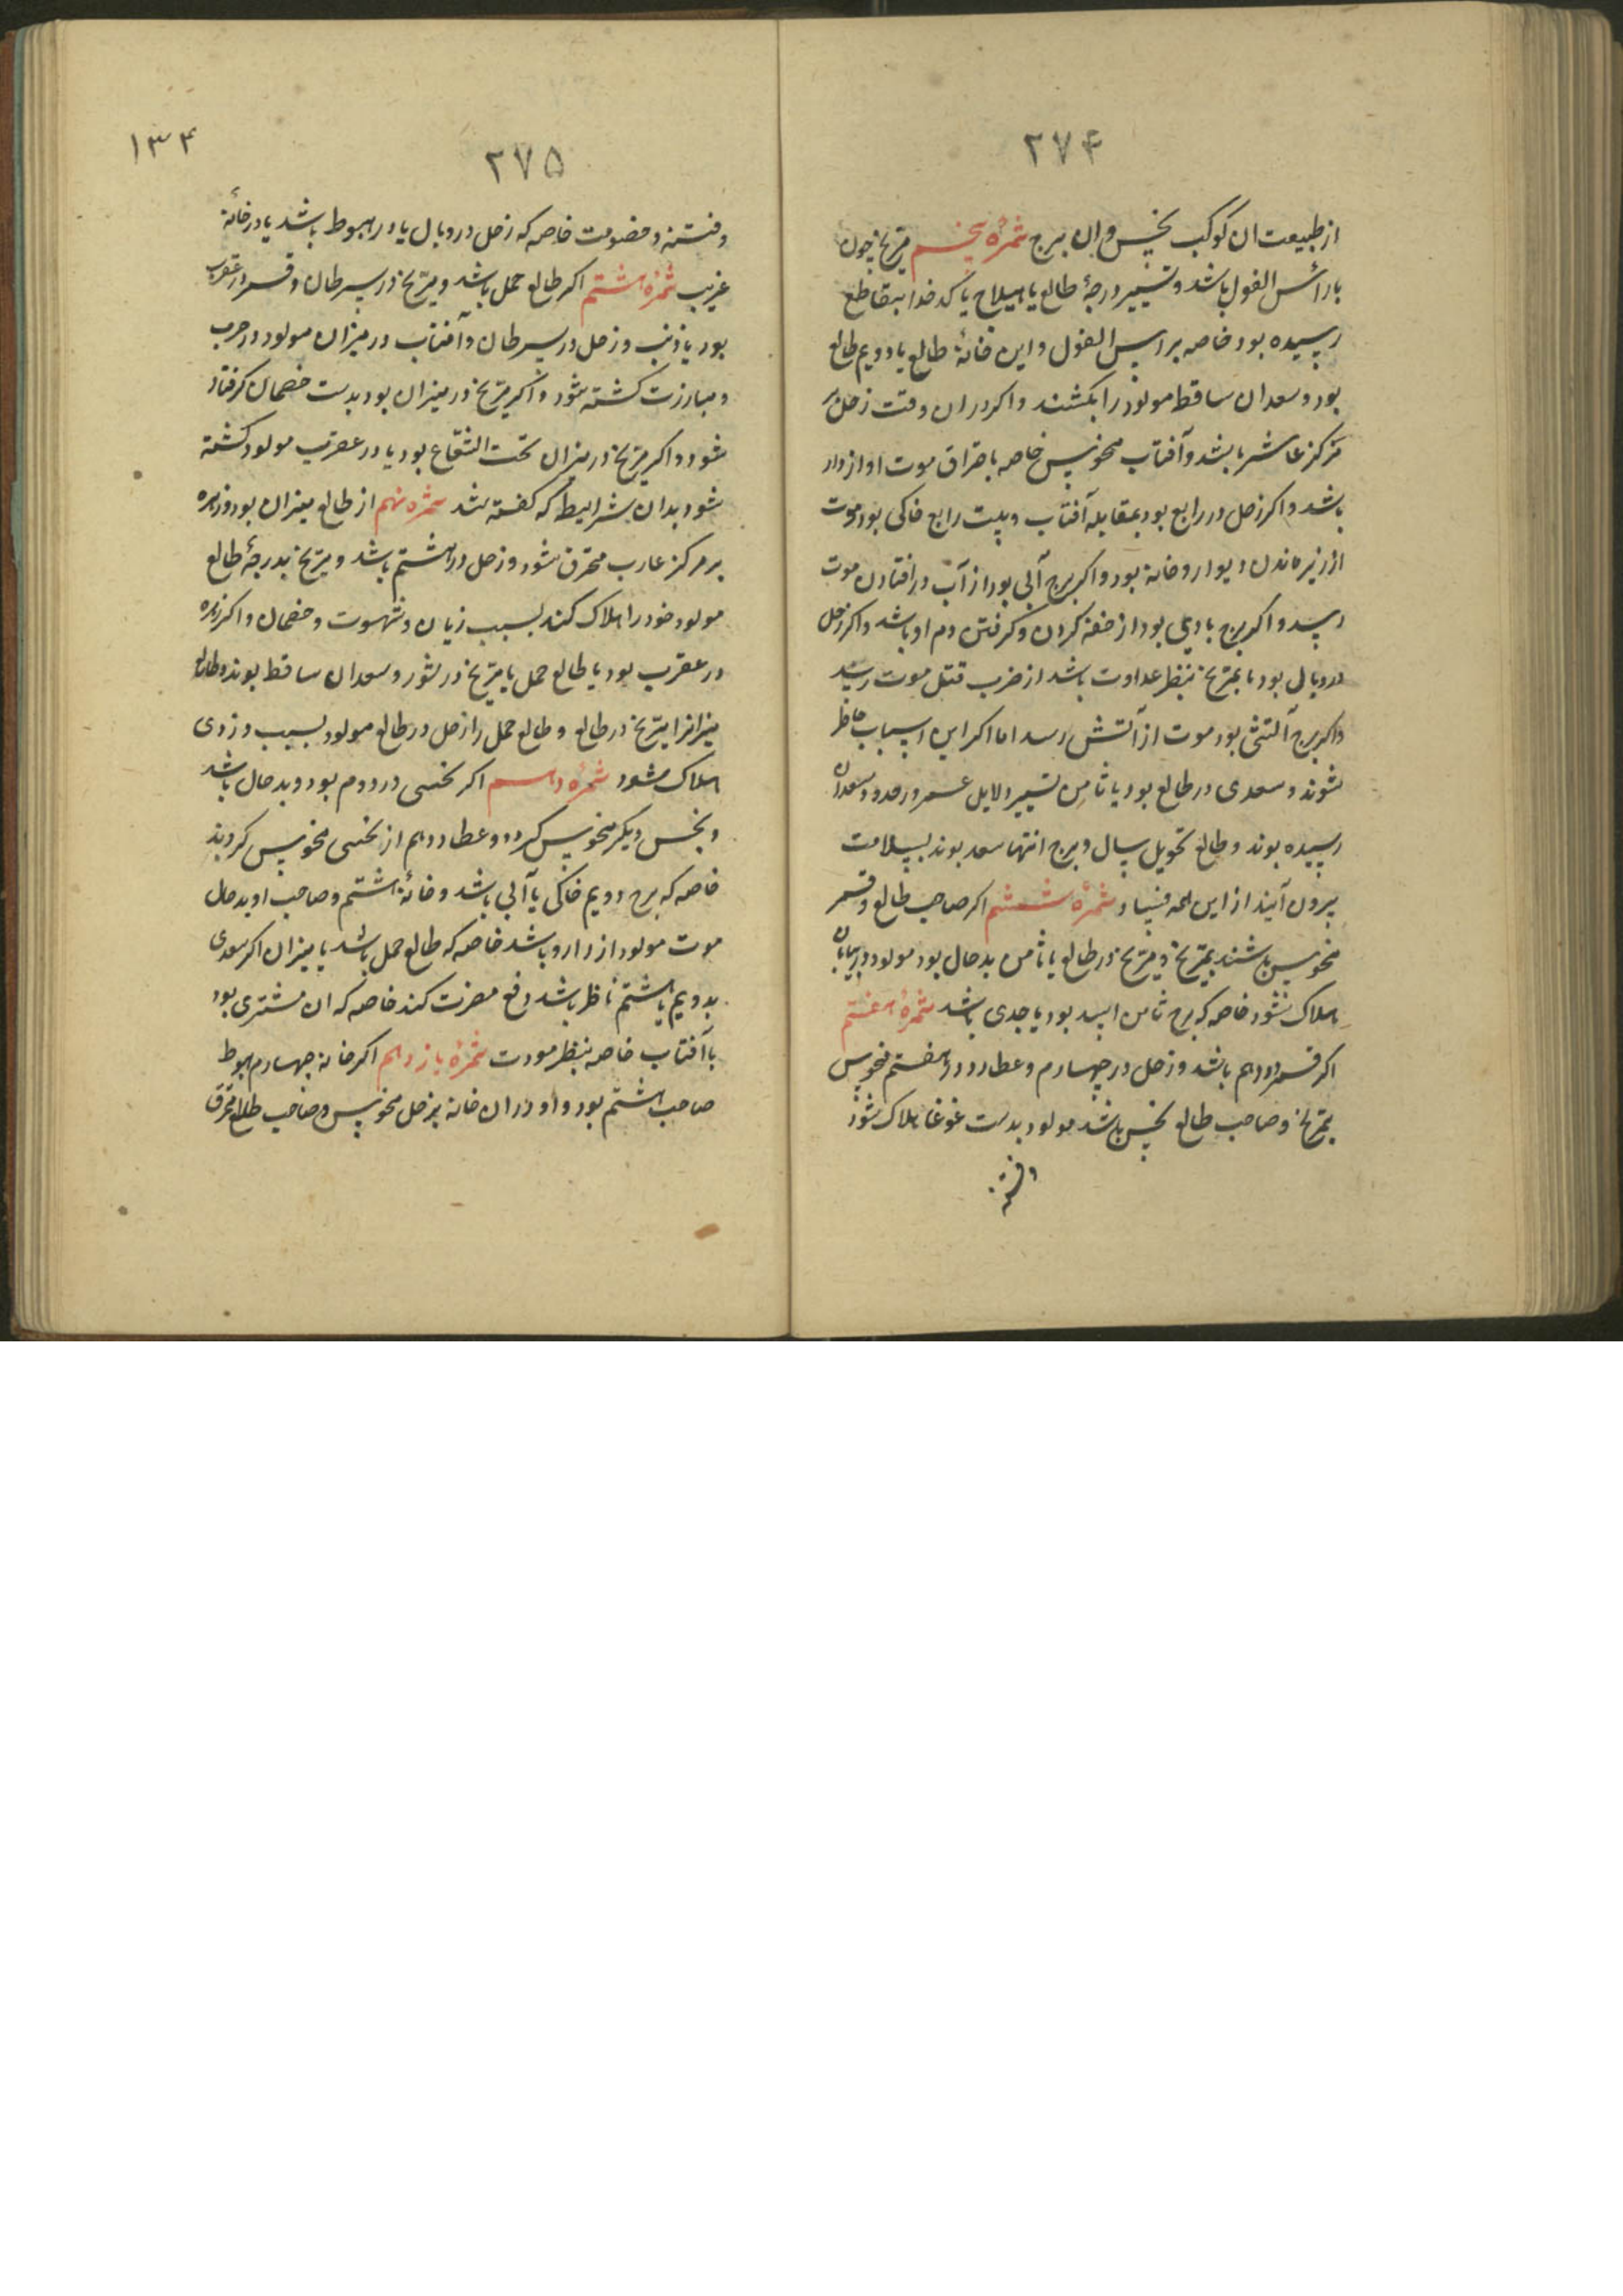 ۲۷۴
از طبیعت ان کوکب نحس وان برج ثمرهٔ پنجم مریخ چون
با رأس الغول باشد و تسییر درجهٔ طالع یا هیلاج یا کدخدا بقاطع
رسیده بود خاصه براس الغول و این خانهٔ طالع یا دویم طالع
بود و سعدان ساقط مولود را بکشند و اکر دران وقت زحل بر
مرکز عاشر باشد و آفتاب منحوس خاصه باحتراق موت او از دار
باشد و اکر زحل در رابع بود بمقابله آفتاب و بیت رابع خاکی بود موت
از زیر ماندن دیوار و خانه بود و اکر برج آبی بود از آب در افتادن موت
رسد و اکر برج بادی بود از خفه کردن و کرفتن دم او باشد و اکر زحل
در وبال بود یا بمریخ بنظر عداوت باشد از ضرب قتل موت رسد
و اکر برج آتشی بود موت از آتش رسد اما اکر این اسباب حاظر
شوند و سعدی در طالع بود یا ثامن تسییر دلایل عمر در حدود سعدان
رسیده بوند و طالع تحویل سال و برج انتها سعد بوند بسلامت
بیرون آیند از این همه فساد ثمرهٔ ششم اکر صاحب طالع و قمر
منحوس باشند بمریخ و مریخ در طالع یا ثامن بدحال بود مولود در بیابان
هلاک شود خاصه که برج ثامن اسد بود یا جدی باشد ثمرهٔ هفتم
اکر قمر در دهم باشد و زحل در چهارم و عطارد در هفتم منحوس
بمریخ و صاحب طالع نحس باشد مولود بدست غوغا هلاک شود
وفتنه
۱۳۴
۲۷۵
وفتنه و خصومت خاصه که زحل در وبال یا در هبوط باشد یا در خانهٔ
غریب ثمرهٔ هشتم اکر طالع حمل باشد و مریخ در سرطان و قمر در عقرب
بود یا ذنب و زحل در سرطان و آفتاب در میزان مولود در حرب
و مبارزت کشته شود و اکر مریخ در میزان بود بدست خصمان کرفتار
شود و اکر مریخ در میزان تحت الشعاع بود یا در عقرب مولود کشته
شود بدان شرایط که کفته شد ثمره نهم از طالع میزان بود و زهره
بر مرکز عارب محترق شود و زحل در هشتم باشد و مریخ بدرجهٔ طالع
مولود خود را هلاک کند بسبب زیان و شهوت و خصمان و اکر زهره
در عقرب بود یا طالع حمل یا مریخ در ثور و سعدان ساقط بوند و طالع
میزانرا مریخ در طالع و طالع حمل را زحل در طالع مولود بسبب دزدی
هلاک شود ثمرهٔ دهم اکر نحسی در دوم بود و بدحال باشد
و بنحس دیکر منحوس کردد و عطارد هم از نحسی منحوس کردند
خاصه که برج دویم خاکی یا آبی باشد و خانهٔ هشتم و صاحب او بدحال
موت مولود از دارو باشد خاصه که طالع حمل باشد یا میزان اکر سعدی
بدویم یا هشتم ناظر باشد دفع مضرت کند خاصه که ان مشتری بود
با آفتاب خاصه بنظر مودت ثمرهٔ یازدهم اکر خانه چهارم هبوط
صاحب هشتم بود و او دران خانه بزحل منحوس و صاحب طالع محترق